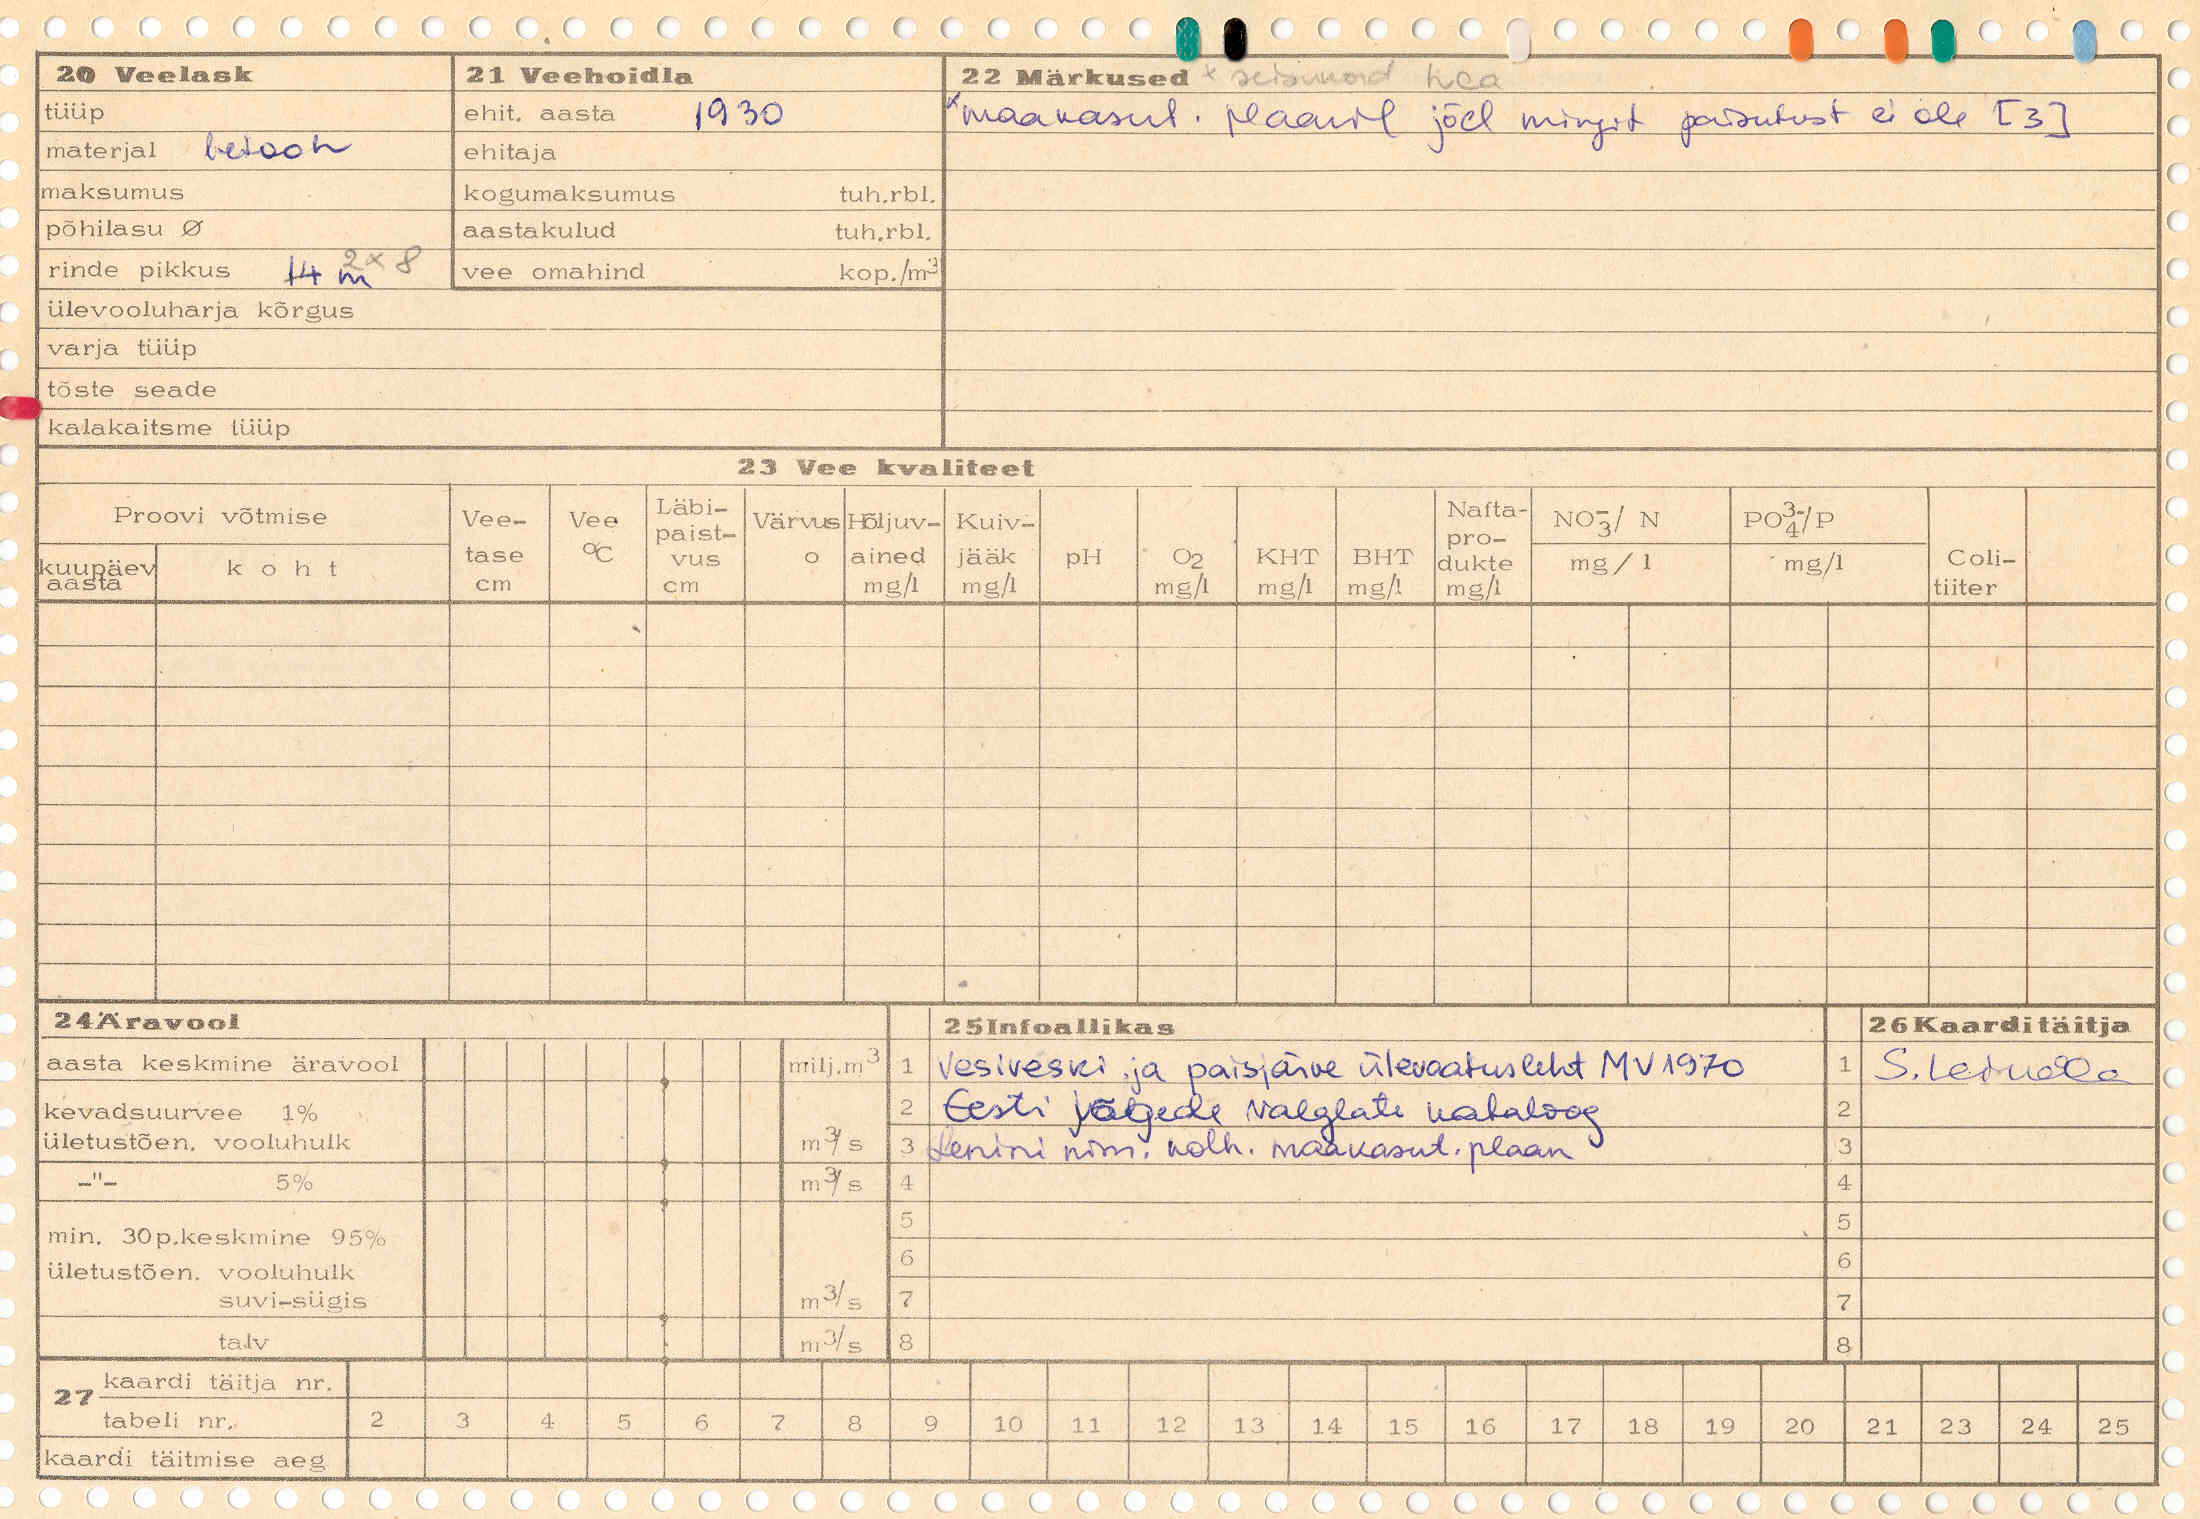 20 Veelask
tüüp
materjal betoon
maksumus
põhilasu Ø
rinde pikkus 14 m 2×8
ülevooluharja kõrgus
varja tüüp
tõste seade
kalakaitsme tüüp
21 Veehoidla
ehit. aasta 1930
ehitaja
kogumaksumus tuh.rbl.
aastakulud tuh.rbl.
vee omahind kop./m³
22 Märkused × seisukord hea
× maakasut. plaanil jõel mingit paisutust ei ole [3]
23 Vee kvaliteet
Proovi võtmise
kuupäev aasta
koht
Vee-tase cm
Vee °C
Läbi-paist-vus cm
Värvus o
Hõljuv-ained mg/l
Kuiv-jääk mg/l
pH
O₂ mg/l
KHT mg/l
BHT mg/l
Nafta-pro-dukte mg/l
NO₃⁻/ N mg/l
PO₄³⁻/P mg/l
Coli-tiiter
24 Äravool
aasta keskmine äravool milj.m³
kevadsuurvee 1%
ületustõen. vooluhulk m³/s
-"- 5% m³/s
min. 30p.keskmine 95%
ületustõen. vooluhulk
suvi-sügis m³/s
talv m³/s
25 Infoallikas
1 Vesiveski ja paisjärve ülevaatusleht MV 1970
2 Eesti jõgede valglate kataloog
3 Lenini nim. kolh. maakasut. plaan
4
5
6
7
8
26 Kaarditäitja
1 S. Leinola
2
3
4
5
6
7
8
27 kaardi täitja nr.
tabeli nr. 2 3 4 5 6 7 8 9 10 11 12 13 14 15 16 17 18 19 20 21 23 24 25
kaardi täitmise aeg